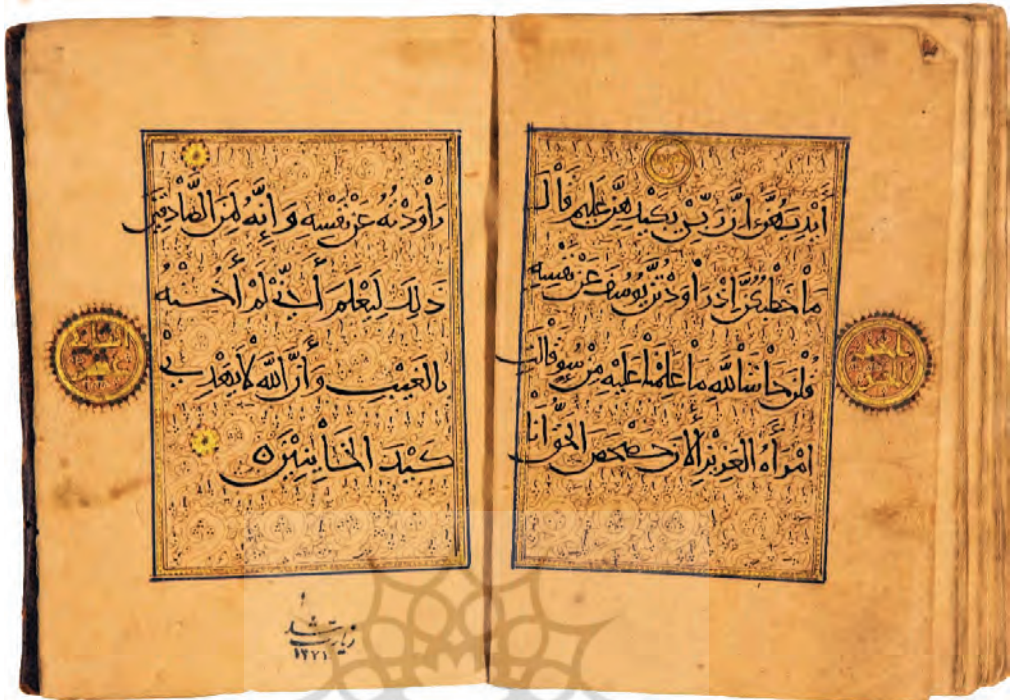 أَيْدِيَهُنَّ إِنَّ رَبِّيْ بِكَيْدِهِنَّ عَلِيم قَاْلَ
مَاْ خَطْبُكُنَّ إِذْ رَاْوَدْتُنَّ يُوْسُفَ عَنْ نَفْسِهِ
قُلْنَ حَاْشَا لِلَّهِ مَاْ عَلِمْنَاْ عَلَيْهِ مِنْ سُو قَالَت
امْرَأَةُ العَزِيْزِ الْأَنَ حَصْحَصَ الحَقُّ أَنَا
رَاْوَدْتُهُ عَنْ نَفْسِهِ وَإِنَّهُ لَمِنَ الصَّاْدِقِيْنَ
ذَلِكَ لِيَعْلَمَ أَنِّيْ لَمْ أَخُنْهُ
بِالغَيْبِ وَأَنَّ اللهَ لَاْ يَهْدِيْ
كَيْدَ الخَاْيِنِيْنَ ه
زیارت شد
۱۳۲۱